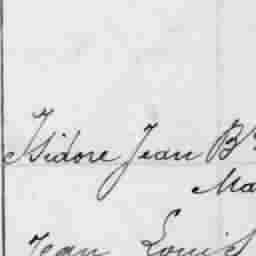 Isidore Jean Bte
Ma
Jean Louis